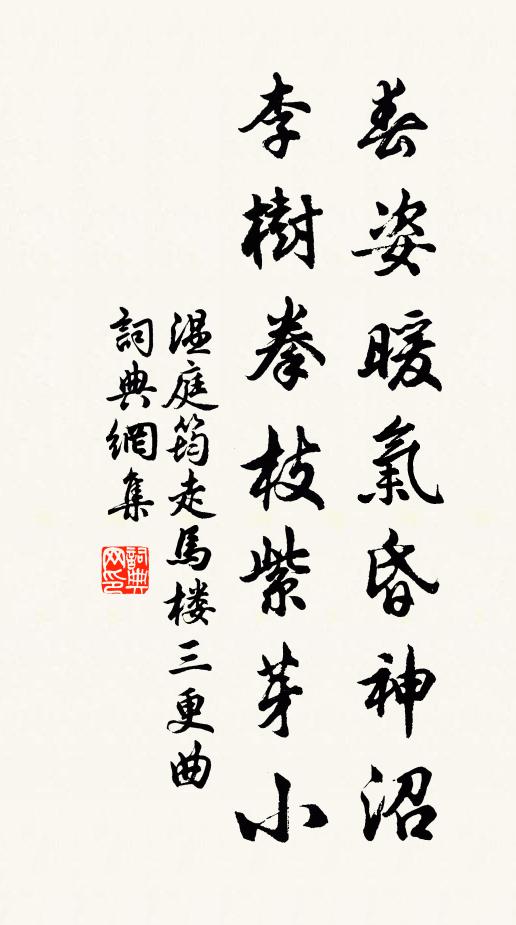 春姿暖氣昏神沼
李樹拳枝紫芽小
温庭筠走馬楼三更曲
詞典網集
詞典网印